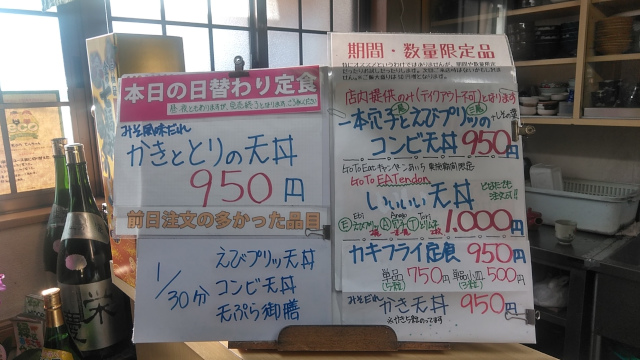 本日の日替わり定食
昼・夜ともありますが、完売終了となります。ご了承ください
みそ風味だれ
かきととりの天丼
950円
前日注文の多かった品目
1/30分
えびプリッ天丼
コンビ天丼
天ぷら御膳
期間・数量限定品
店内提供のみ(テイクアウト不可)となります
一本穴子とえびプリッの
コンビ天丼 950円
GoToEatキャンペーンあいち
GoTo EATendon
いいいい天丼
1.000円
カキフライ定食 950円
単品(5ケ) 750円
単品小皿(3ケ) 500円
みそだれ
かき天丼 950円
栄